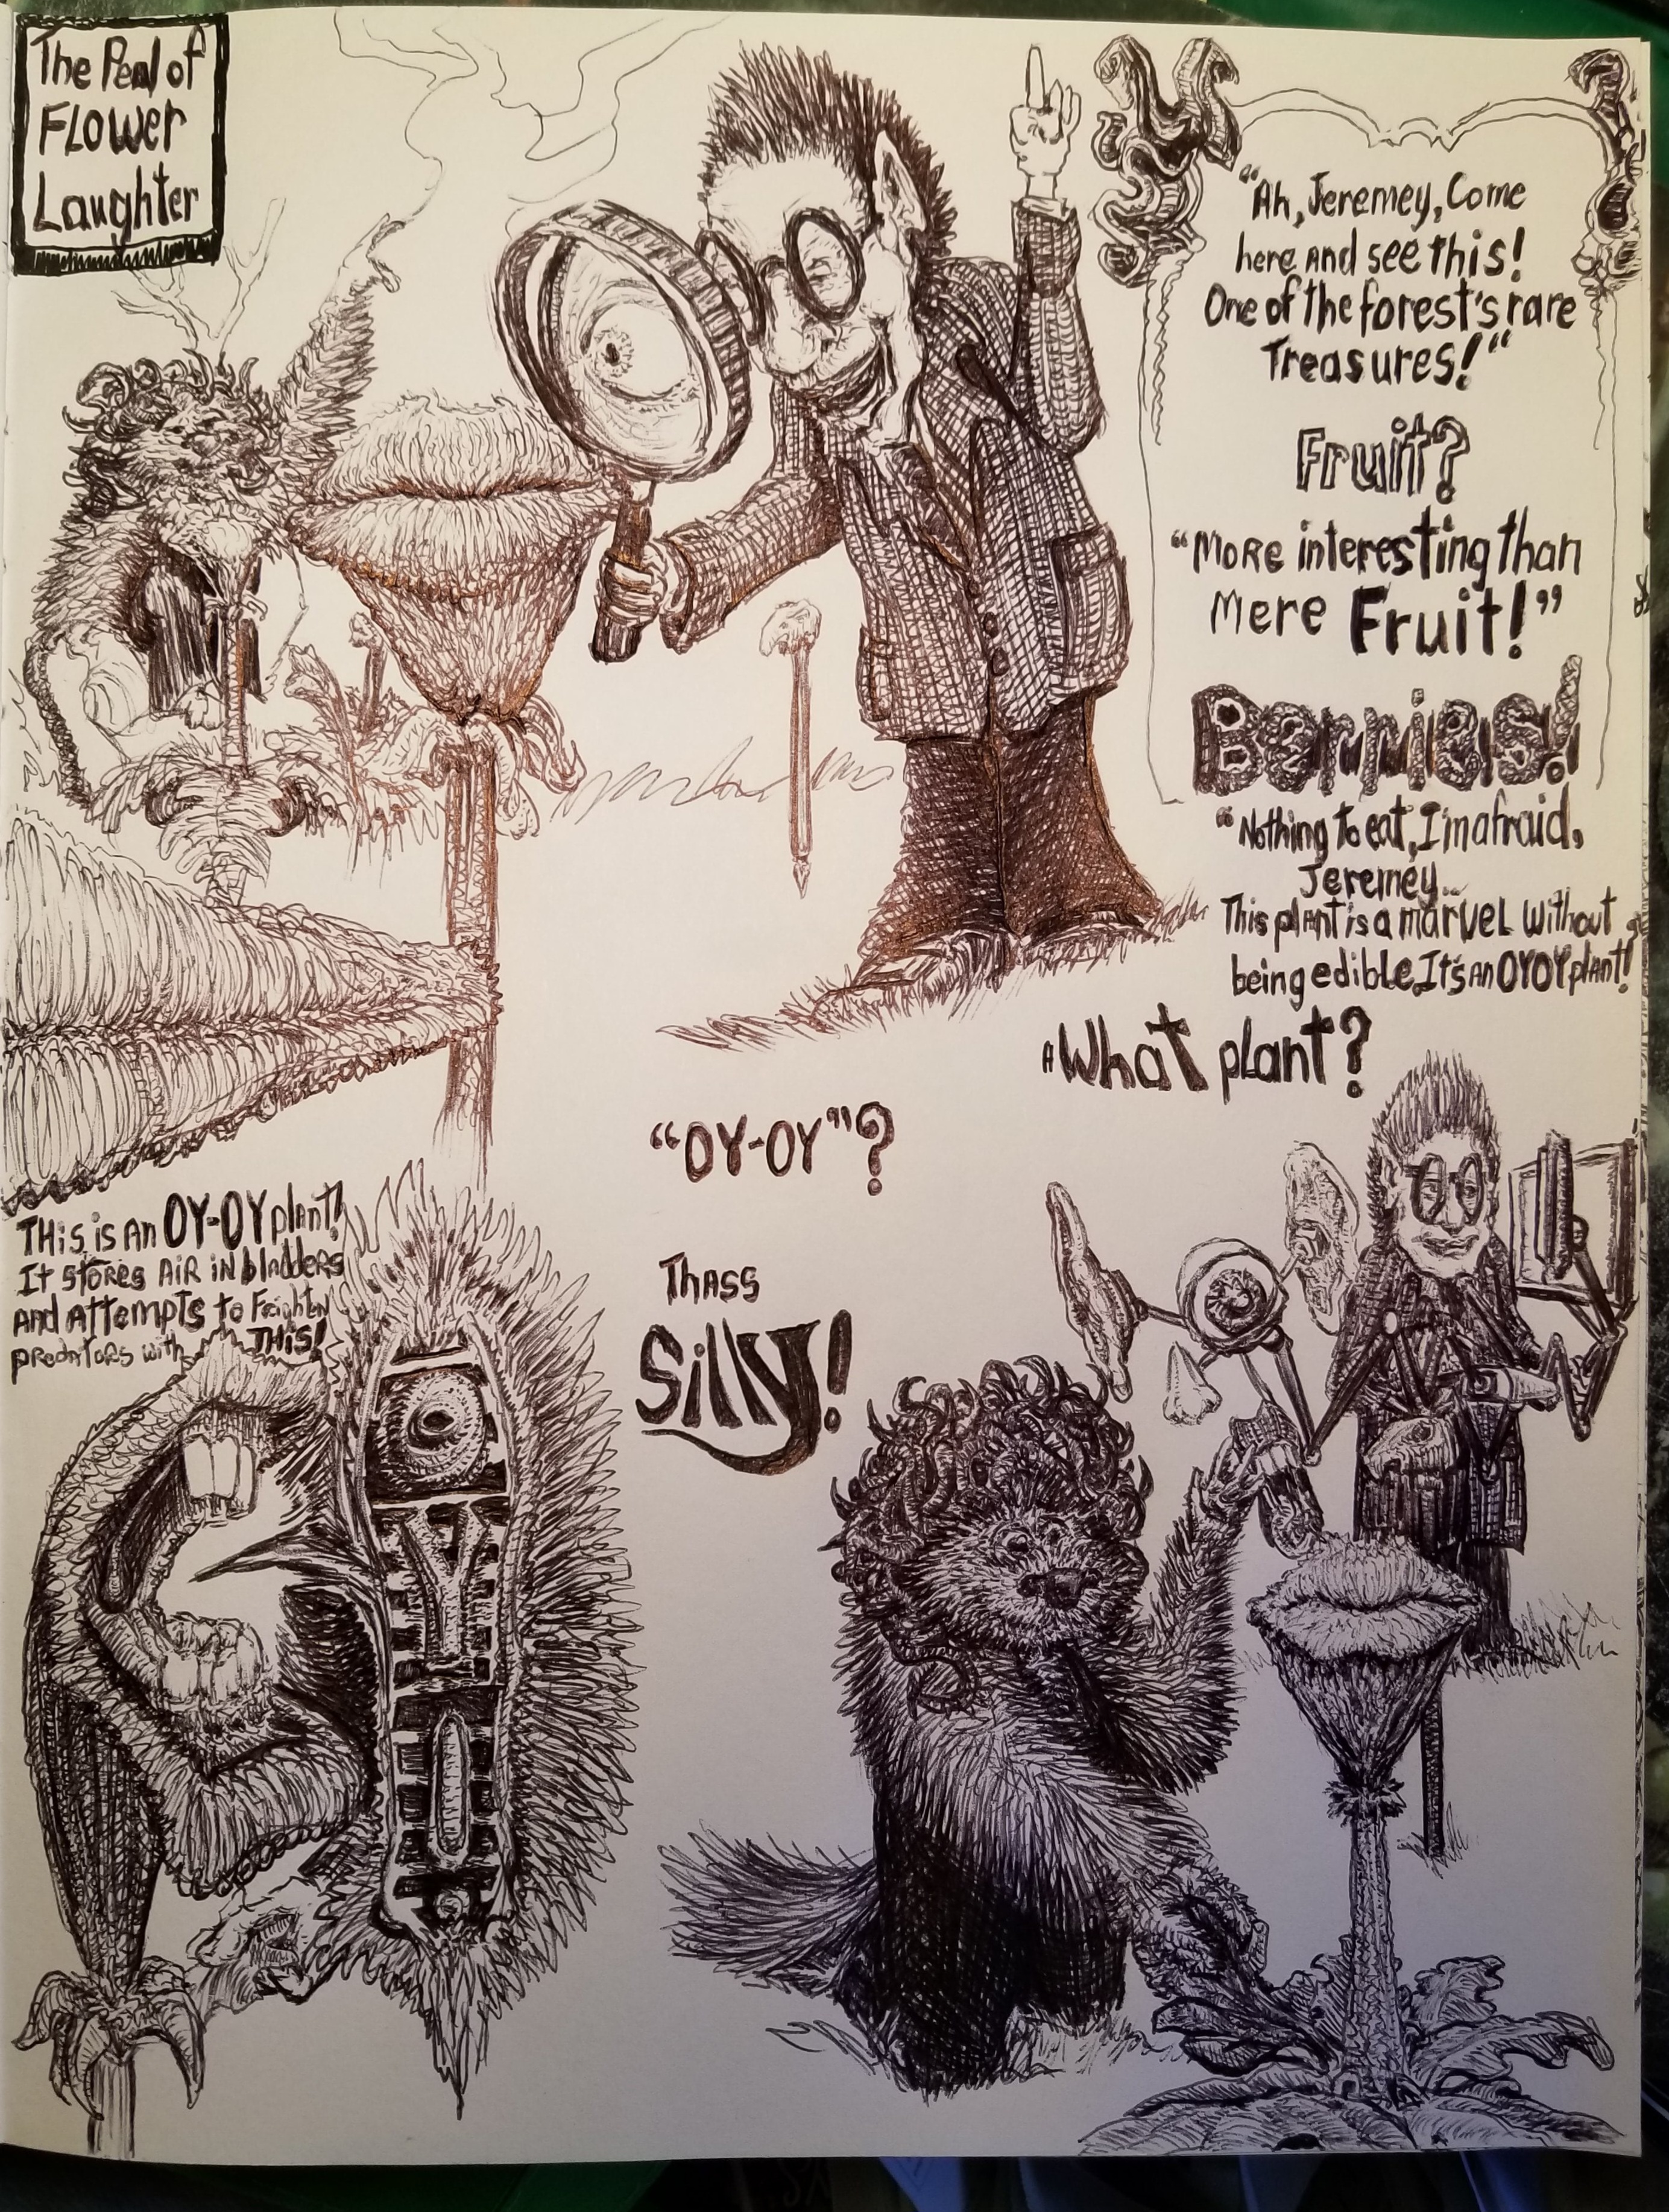 The Peal of
FLOWER
Laughter
"Ah, Jeremey, Come
here and see this!
One of the forest's rare
Treasures!"
Fruit?
"More interesting than
Mere Fruit!"
Berries!
"Nothing to eat, I'm afraid,
Jeremey...
This plant is a marvel without
being edible. It's an OYOY plant!
"What plant?
"OY-OY"?
THis is An OY-OY plant!
It stores AiR iN bladders
And attempts to Frighten
predators with THiS!
Thass
Silly!